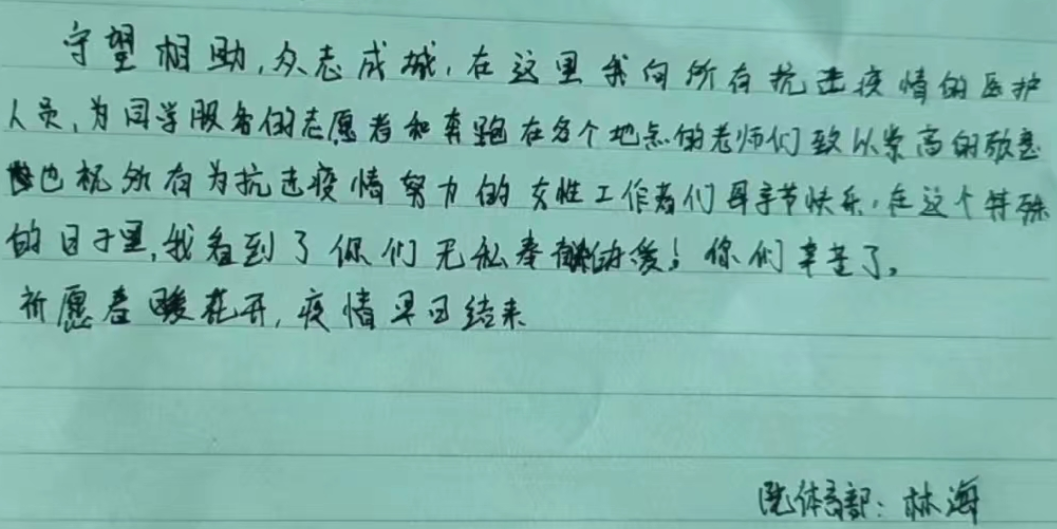 守望相助,众志成城,在这里我向所有抗击疫情的医护
人员,为同学服务的志愿者和奔跑在各个地点的老师们致以崇高的敬意
也祝所有为抗击疫情努力的女性工作者们母亲节快乐,在这个特殊
的日子里,我看到了你们无私奉献的爱!你们辛苦了。
祈愿春暖花开,疫情早日结束
院体育部:林海